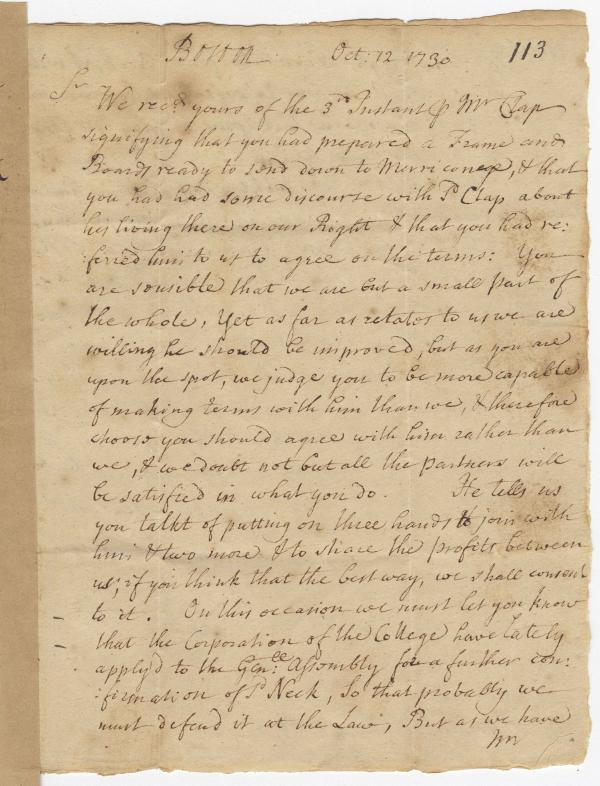 Boston Oct: 12 1730 113
Sr
We recd yours of the 3rd Instant ⅌ Mr Clap
signifying that you had prepared a Frame and
Boards ready to send down to Merriconeg, & that
you had had some discourse with Sd Clap about
his living there on our Right & that you had re:
:ferred him to us to agree on the terms: You
are sensible that we are but a small part of
the whole, Yet as far as relates to us we are
willing he should be improved, but as you are
upon the spot, we judge you to be more capable
of making terms with him than we, & therefore
choose you should agree with him rather than
we, & we doubt not but all the partners will
be satisfied in what you do. He tells us
you talkt of putting on three hands to join with
him & two more & to share the profits between
us; if you think that the best way, we shall consent
to it. On this occasion we must let you know
that the Corporation of the College have lately
apply'd to the Genll: Assembly for a further con:
:firmation of sd Neck, So that probably we
must defend it at the Law, But as we have